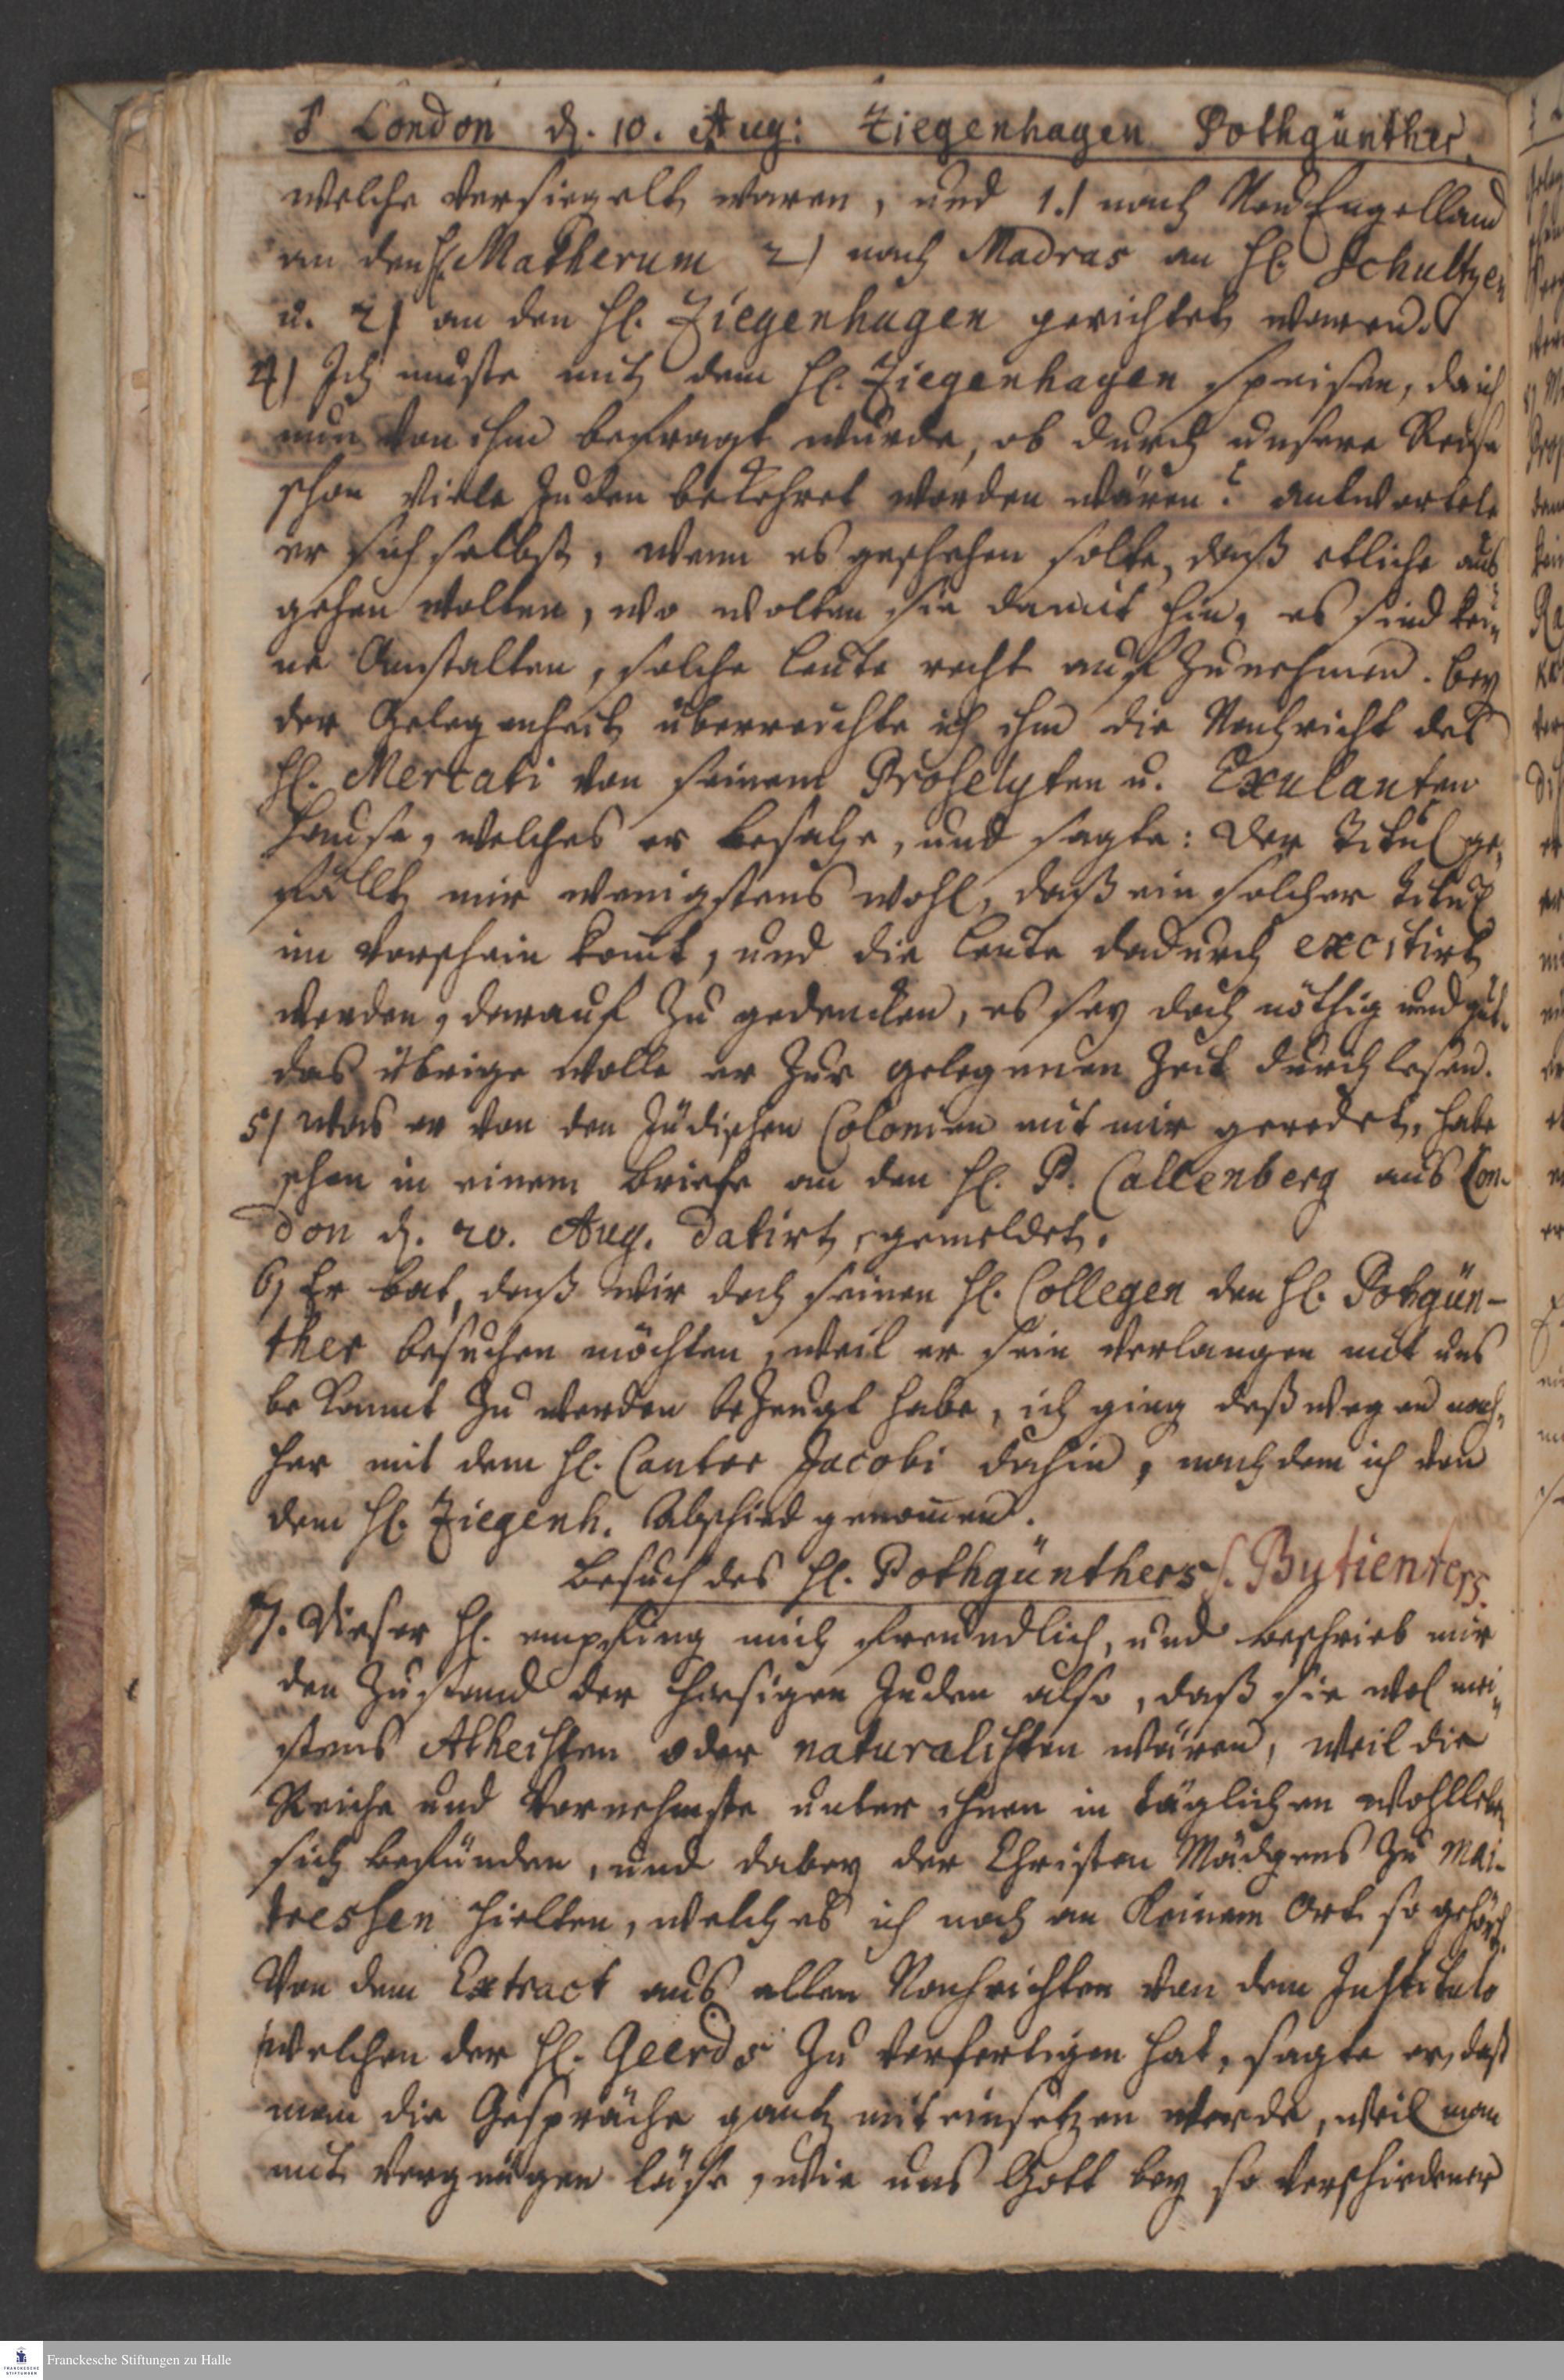 London d. 10. Aug: Ziegenhagen Pothgünther.
welche versiegelt waren, und 1.) nach Neu Engelland
an den H. Matherum 2) nach Madras an Hl. Schultzen
u. 2) an den Hl. Ziegenhagen gerichtet waren.
4) Ich muste mit dem Hl. Ziegenhagen speisen, da ich
nun von ihm befragt wurde, ob durch unsere Reise
schon viele Juden bekehret worden wären? antwortete
er sich selbst, wenn es geschehen solte, daß etliche aus
gehen wolten, wo wolten sie damit hin, es sind kei-
ne Anstalten, solche Leute recht auf zunehmen. bey
der Gelegenheit überreichte ich ihm die Nachricht des
Hl. Mercati von seinem Proselyten u. Exulanten
Hause, welches er besahe, und sagte: Der Titul ge-
fällt mir wenigstens wohl, daß ein solcher Titul
im Vorschein komt, und die Leute dadurch excitirt
werden, darauf zu gedencken, es sey doch nöthig und gut.
das übrige wolle er zur gelegenen Zeit durchlesen.
5) was er von den Jüdischen Colonien mit mir geredet, habe
schon in einem Briefe an den Hl. P. Callenberg aus Lon-
don d. 20. Aug. datirt, gemeldet.
6) Er bat, daß wir doch seinen Hl. Collegen den Hl. Potgün-
ther besuchen möchten, weil er sein Verlangen mit uns
bekannt zu werden bezeugt habe, ich ging deßwegen nach-
her mit dem Hl. Cantor Jacobi dahin, nachdem ich von
dem Hl. Ziegenh. Abschied genomen.
Besuch des Hl. Pothgünthers s. Butienters.
7. Dieser Hl. empfing mich freundlich, und beschrieb mir
den Zustand der hiesigen Juden also, daß sie wol mei-
stens Atheisten oder naturalisten wären, weil die
Reiche und Vornehmste unter ihnen in täglichen Wohlleben
sich befünden, und dabey der Christen Mädgens zu Mai-
tressen hielten, welches ich noch an keinem Ort so gehört.
Von dem Extract aus allen Nachrichten von dem Instituto
welchen der Hl. Geerds zu verfertigen hat, sagte er, daß
man die Gespräche gantz mit einsetzen werde, weil man
mit Vergnügen läse, wie uns Gott bey so verschiedener
Franckesche Stiftungen zu Halle